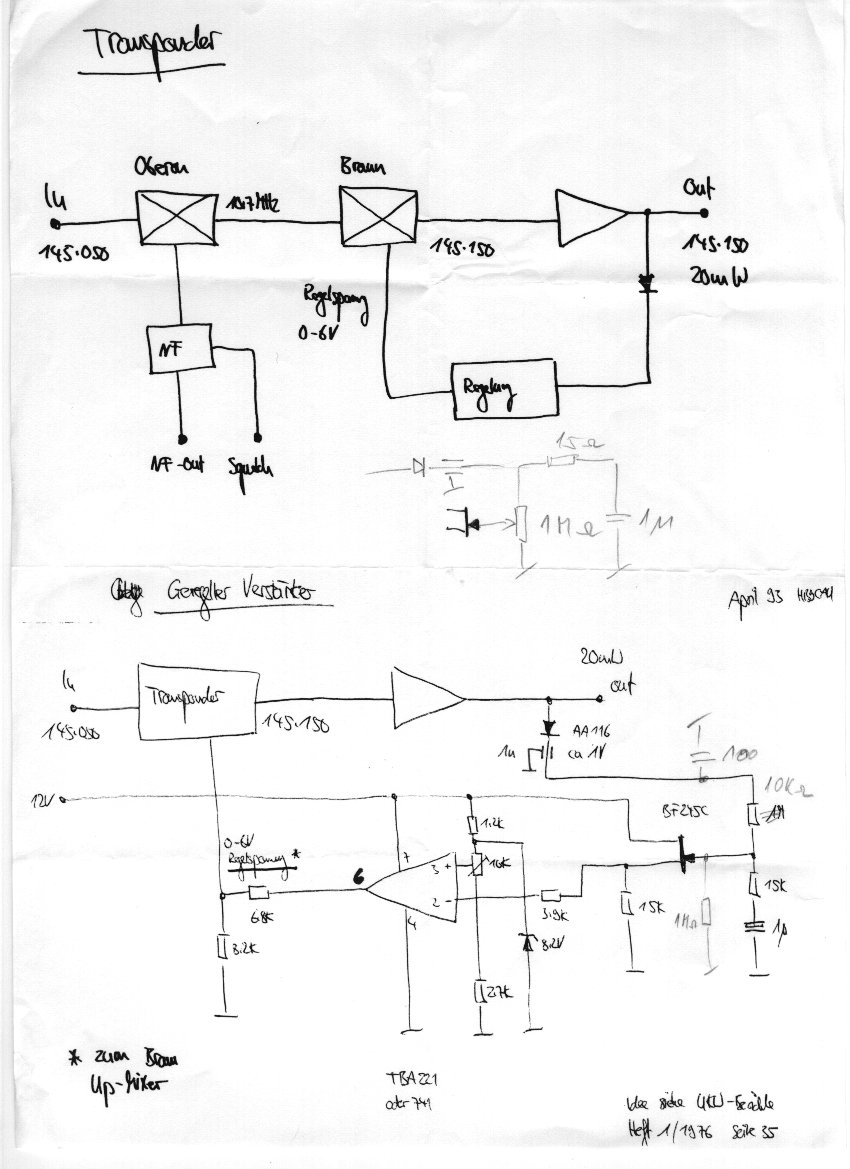 Transponder
Oberon
Braun
In
10.7MHz
Out
145.050
145.150
145.150
20mW
Regelspanng
0-6V
NF
Regelung
NF-out
Squelch
15Ω
1MΩ
1µ
Geregelter Verstärker
April 93
In
Transponder
20mW
out
145.050
145.150
AA116
ca 1V
1n
100
10KΩ
12V
BF245C
1.2K
0-6V
Regelspannung *
6
7
3 +
10K
2 -
15K
68K
3.9K
15K
1MΩ
1µ
4
8.2K
8.2V
2.7K
* zum Braun
Up-Mixer
TBA221
oder 741
Idee siehe UKW-Berichte
Heft 1/1976 Seite 35